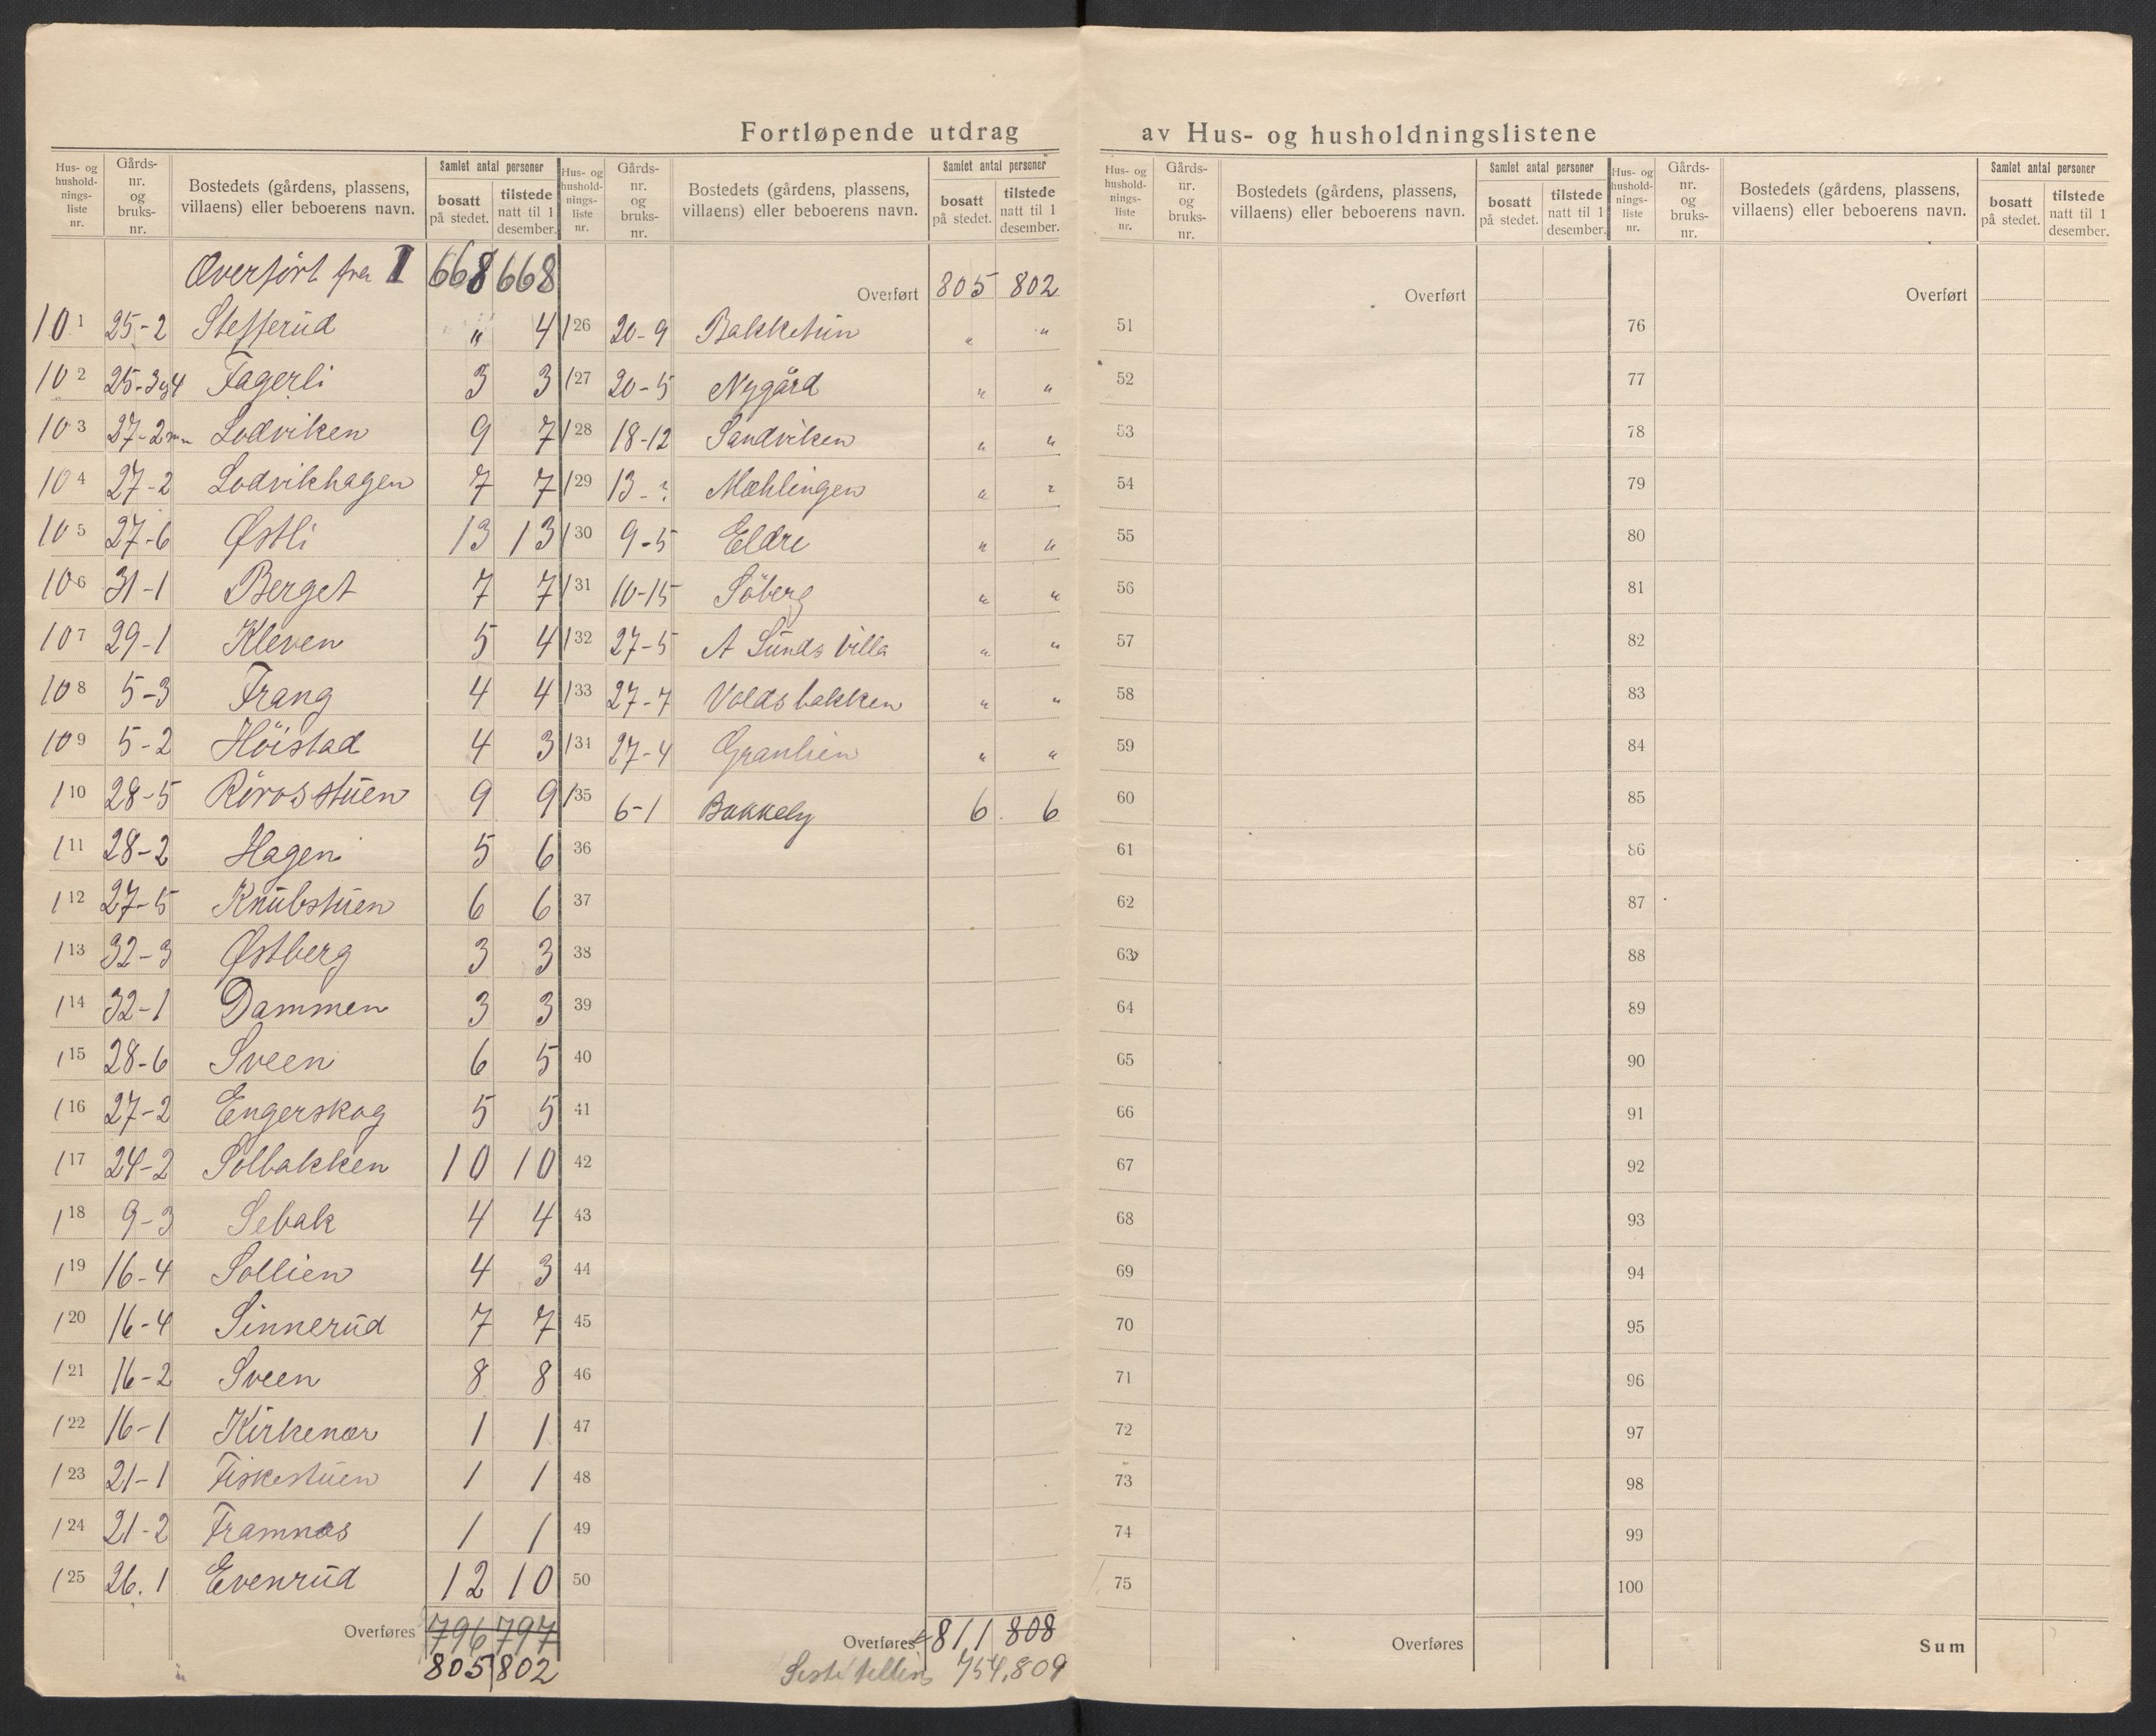 Fortløpende utdrag av Hus- og husholdningslistene
Hus- og husholdnings-liste nr. | Gårds-nr. og bruks-nr. | Bostedets (gårdens, plassens, villaens) eller beboerens navn. | Samlet antal personer | bosatt på stedet. | tilstede natt til 1 desember.
Overført fra 1 668 668
101 25-2 Stefferud " 4
102 25-3og4 Fagerli 3 3
103 27-2 Lodviken 9 7
104 27-2 Lodvikhagen 7 7
105 27-6 Østli 13 13
106 31-1 Berget 7 7
107 29-1 Kleven 5 4
108 5-3 Frang 4 4
109 5-2 Höistad 4 3
110 28-5 Rörosstuen 9 9
111 28-2 Hagen 5 6
112 27-5 Knubstuen 6 6
113 32-3 Østberg 3 3
114 32-1 Dammen 3 3
115 28-6 Sveen 6 5
116 27-2 Engerskog 5 5
117 24-2 Solbakken 10 10
118 9-3 Sebak 4 4
119 16-4 Sollien 4 3
120 16-4 Sinnerud 7 7
121 16-2 Sveen 8 8
122 16-1 Kirkenær 1 1
123 21-1 Fiskestuen 1 1
124 21-2 Framnæs 1 1
125 26.1 Evenrud 12 10
Overføres 796 797
805 802
Hus- og husholdnings-liste nr. | Gårds-nr. og bruks-nr. | Bostedets (gårdens, plassens, villaens) eller beboerens navn. | Samlet antal personer | bosatt på stedet. | tilstede natt til 1 desember.
Overført 805 802
126 20-9 Bakketun " "
127 20-5 Nygård " "
128 18-12 Sandviken " "
129 13-? Mæhlingen " "
130 9-5 Eldre " "
131 10-15 Söberg " "
132 27-5 A Lunds Villa " "
133 27-7 Voldsbakken " "
134 27-4 Granlien " "
135 6-1 Bakkely 6 6
36
37
38
39
40
41
42
43
44
45
46
47
48
49
50
Overføres 811 808
Siste telling 754. 809
Hus- og husholdnings-liste nr. | Gårds-nr. og bruks-nr. | Bostedets (gårdens, plassens, villaens) eller beboerens navn. | Samlet antal personer | bosatt på stedet. | tilstede natt til 1 desember.
Overført
51
52
53
54
55
56
57
58
59
60
61
62
63
64
65
66
67
68
69
70
71
72
73
74
75
Overføres
Hus- og husholdnings-liste nr. | Gårds-nr. og bruks-nr. | Bostedets (gårdens, plassens, villaens) eller beboerens navn. | Samlet antal personer | bosatt på stedet. | tilstede natt til 1 desember.
Overført
76
77
78
79
80
81
82
83
84
85
86
87
88
89
90
91
92
93
94
95
96
97
98
99
100
Sum